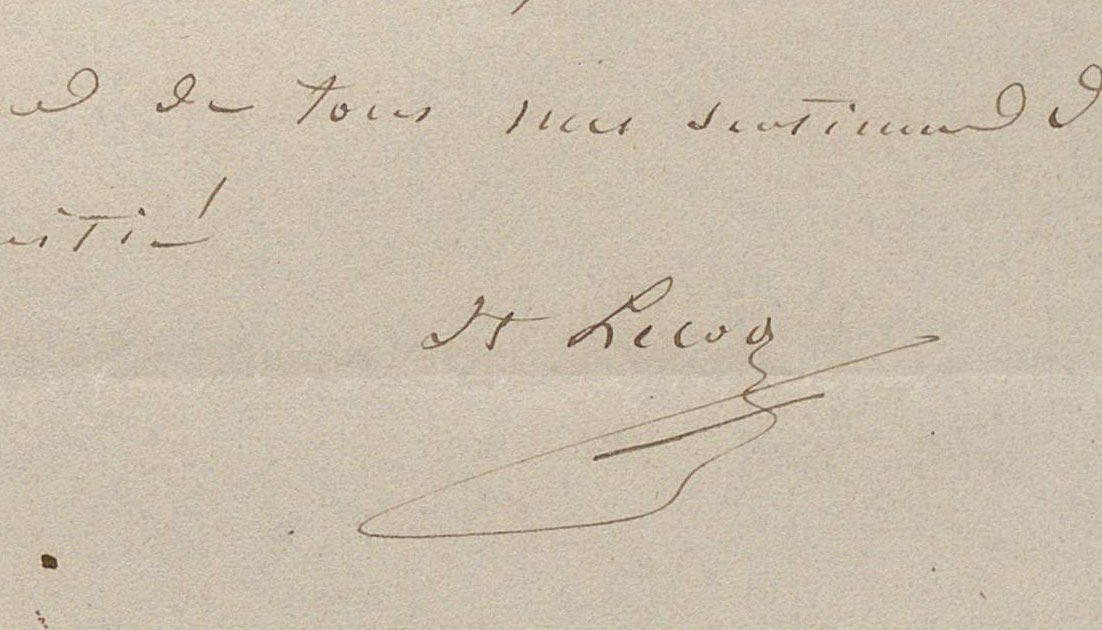 de tous mes sentiments d
mitié
H Lecoq